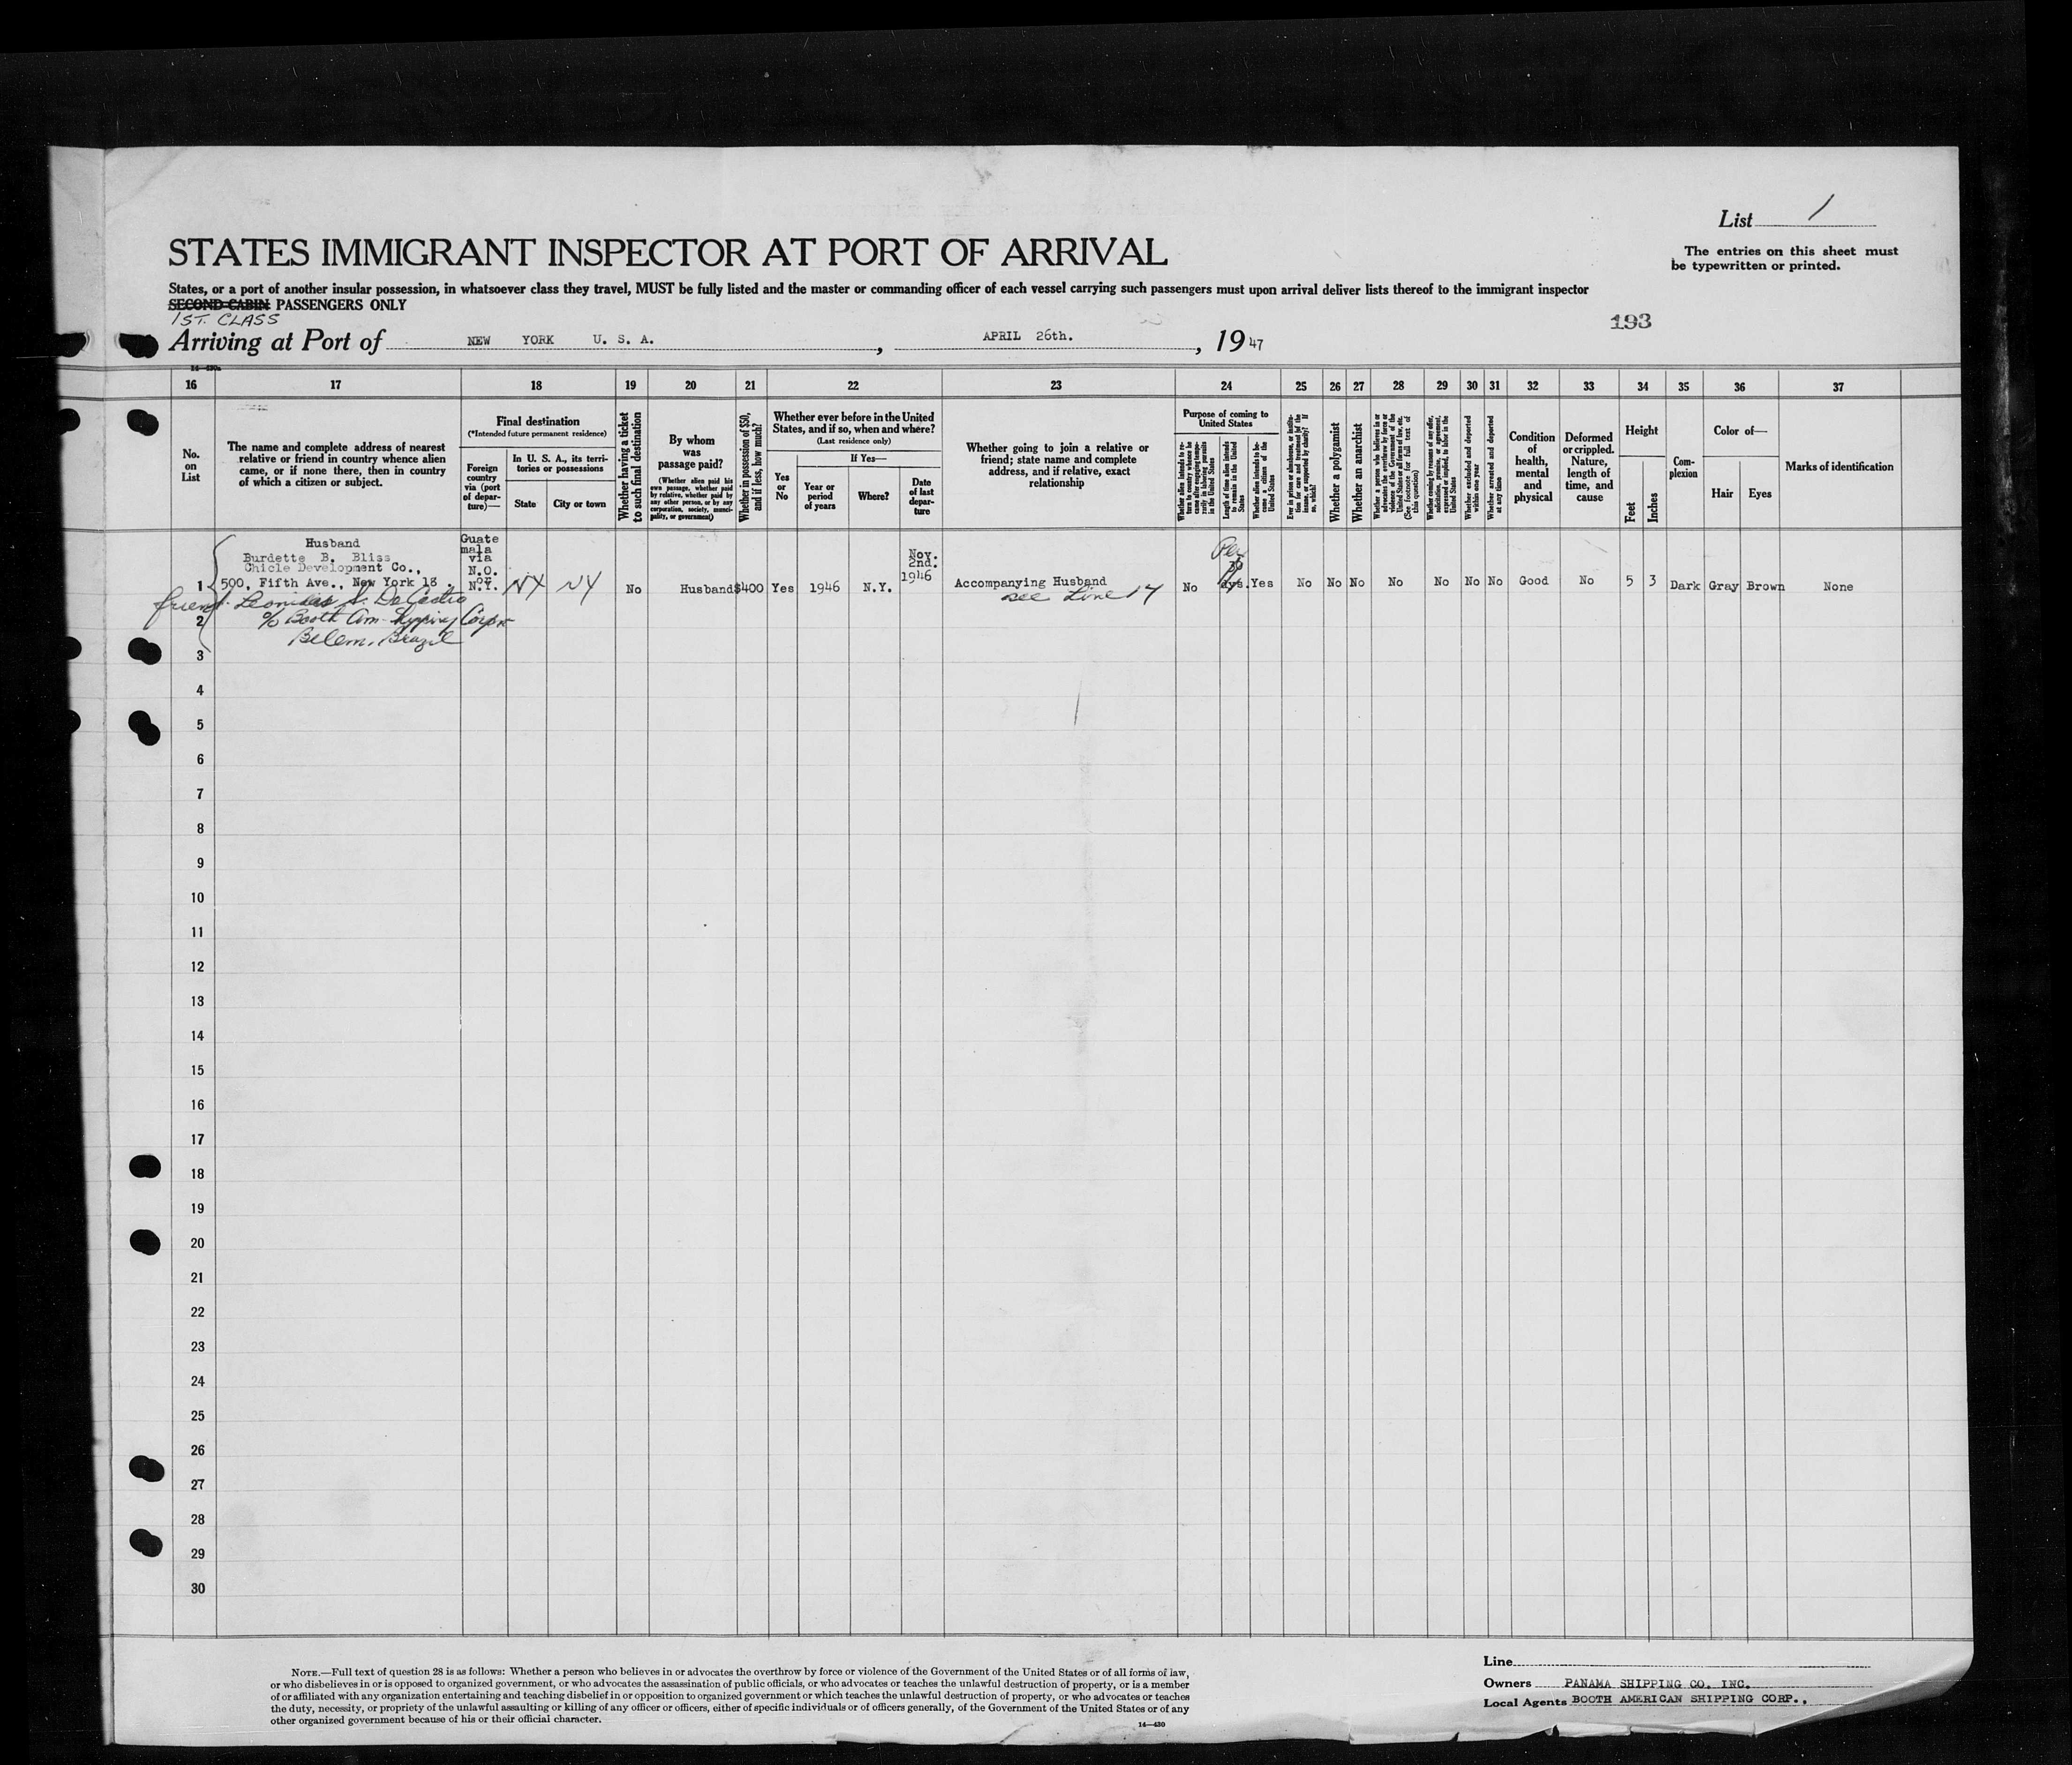 List 1
The entries on this sheet must
be typewritten or printed.
STATES IMMIGRANT INSPECTOR AT PORT OF ARRIVAL
States, or a port of another insular possession, in whatsoever class they travel, MUST be fully listed and the master or commanding officer of each vessel carrying such passengers must upon arrival deliver lists thereof to the immigrant inspector
SECOND-CABIN PASSENGERS ONLY
1ST. CLASS
193
Arriving at Port of NEW YORK U. S. A. , APRIL 26th. , 1947
16 17 18 19 20 21 22 23 24 25 26 27 28 29 30 31 32 33 34 35 36 37
No.
on
List
The name and complete address of nearest
relative or friend in country whence alien
came, or if none there, then in country
of which a citizen or subject.
Final destination
(*Intended future permanent residence)
Foreign
country
via (port
of depar-
ture)—
In U. S. A., its terri-
tories or possessions
State
City or town
Whether having a ticket
to such final destination
By whom
was
passage paid?
(Whether alien paid his
own passage, whether paid
by relative, whether paid by
any other person, or by any
corporation, society, munici-
pality, or government)
Whether in possession of $50,
and if less, how much?
Whether ever before in the United
States, and if so, when and where?
(Last residence only)
Yes
or
No
If Yes—
Year or
period
of years
Where?
Date
of last
depar-
ture
Whether going to join a relative or
friend; state name and complete
address, and if relative, exact
relationship
Purpose of coming to
United States
Whether alien intends to re-
turn to country whence he
came after engaging tempo-
rarily in laboring pursuits
in the United States
Length of time alien intends
to remain in the United
States
Whether alien intends to be-
come a citizen of the
United States
Ever in prison or almshouse, or institu-
tion for care and treatment of the
insane, or supported by charity? If
so, which?
Whether a polygamist
Whether an anarchist
Whether a person who believes in or
advocates the overthrow by force or
violence of the Government of the
United States or all forms of law, etc.
(See footnote for full text of
this question)
Whether coming by reason of any offer,
solicitation, promise, or agreement,
expressed or implied, to labor in the
United States
Whether excluded and deported
within one year
Whether arrested and deported
at any time
Condition
of
health,
mental
and
physical
Deformed
or crippled.
Nature,
length of
time, and
cause
Height
Feet
Inches
Com-
plexion
Color of—
Hair
Eyes
Marks of identification
Husband
Burdette B. Bliss
Chicle Development Co.,
1 500, Fifth Ave., New York 18.
friend Leonidas S. De Castro
2 c/o Booth Am. Shipping Corpn
Belem, Brazil
Guate
mala
via
N.O.
or
N.Y.
NY NY No Husband $400 Yes 1946 N.Y.
Nov.
2nd.
1946
Accompanying Husband
see Line 14
No
Per
30
dys. Yes No No No No No No No Good No 5 3 Dark Gray Brown None
3
4
5
6
7
8
9
10
11
12
13
14
15
16
17
18
19
20
21
22
23
24
25
26
27
28
29
30
NOTE.—Full text of question 28 is as follows: Whether a person who believes in or advocates the overthrow by force or violence of the Government of the United States or of all forms of law,
or who disbelieves in or is opposed to organized government, or who advocates the assassination of public officials, or who advocates or teaches the unlawful destruction of property, or is a member
of or affiliated with any organization entertaining and teaching disbelief in or opposition to organized government or which teaches the unlawful destruction of property, or who advocates or teaches
the duty, necessity, or propriety of the unlawful assaulting or killing of any officer or officers, either of specific individuals or of officers generally, of the Government of the United States or of any
other organized government because of his or their official character.
14—430
Line
Owners PANAMA SHIPPING CO. INC.
Local Agents BOOTH AMERICAN SHIPPING CORP.,